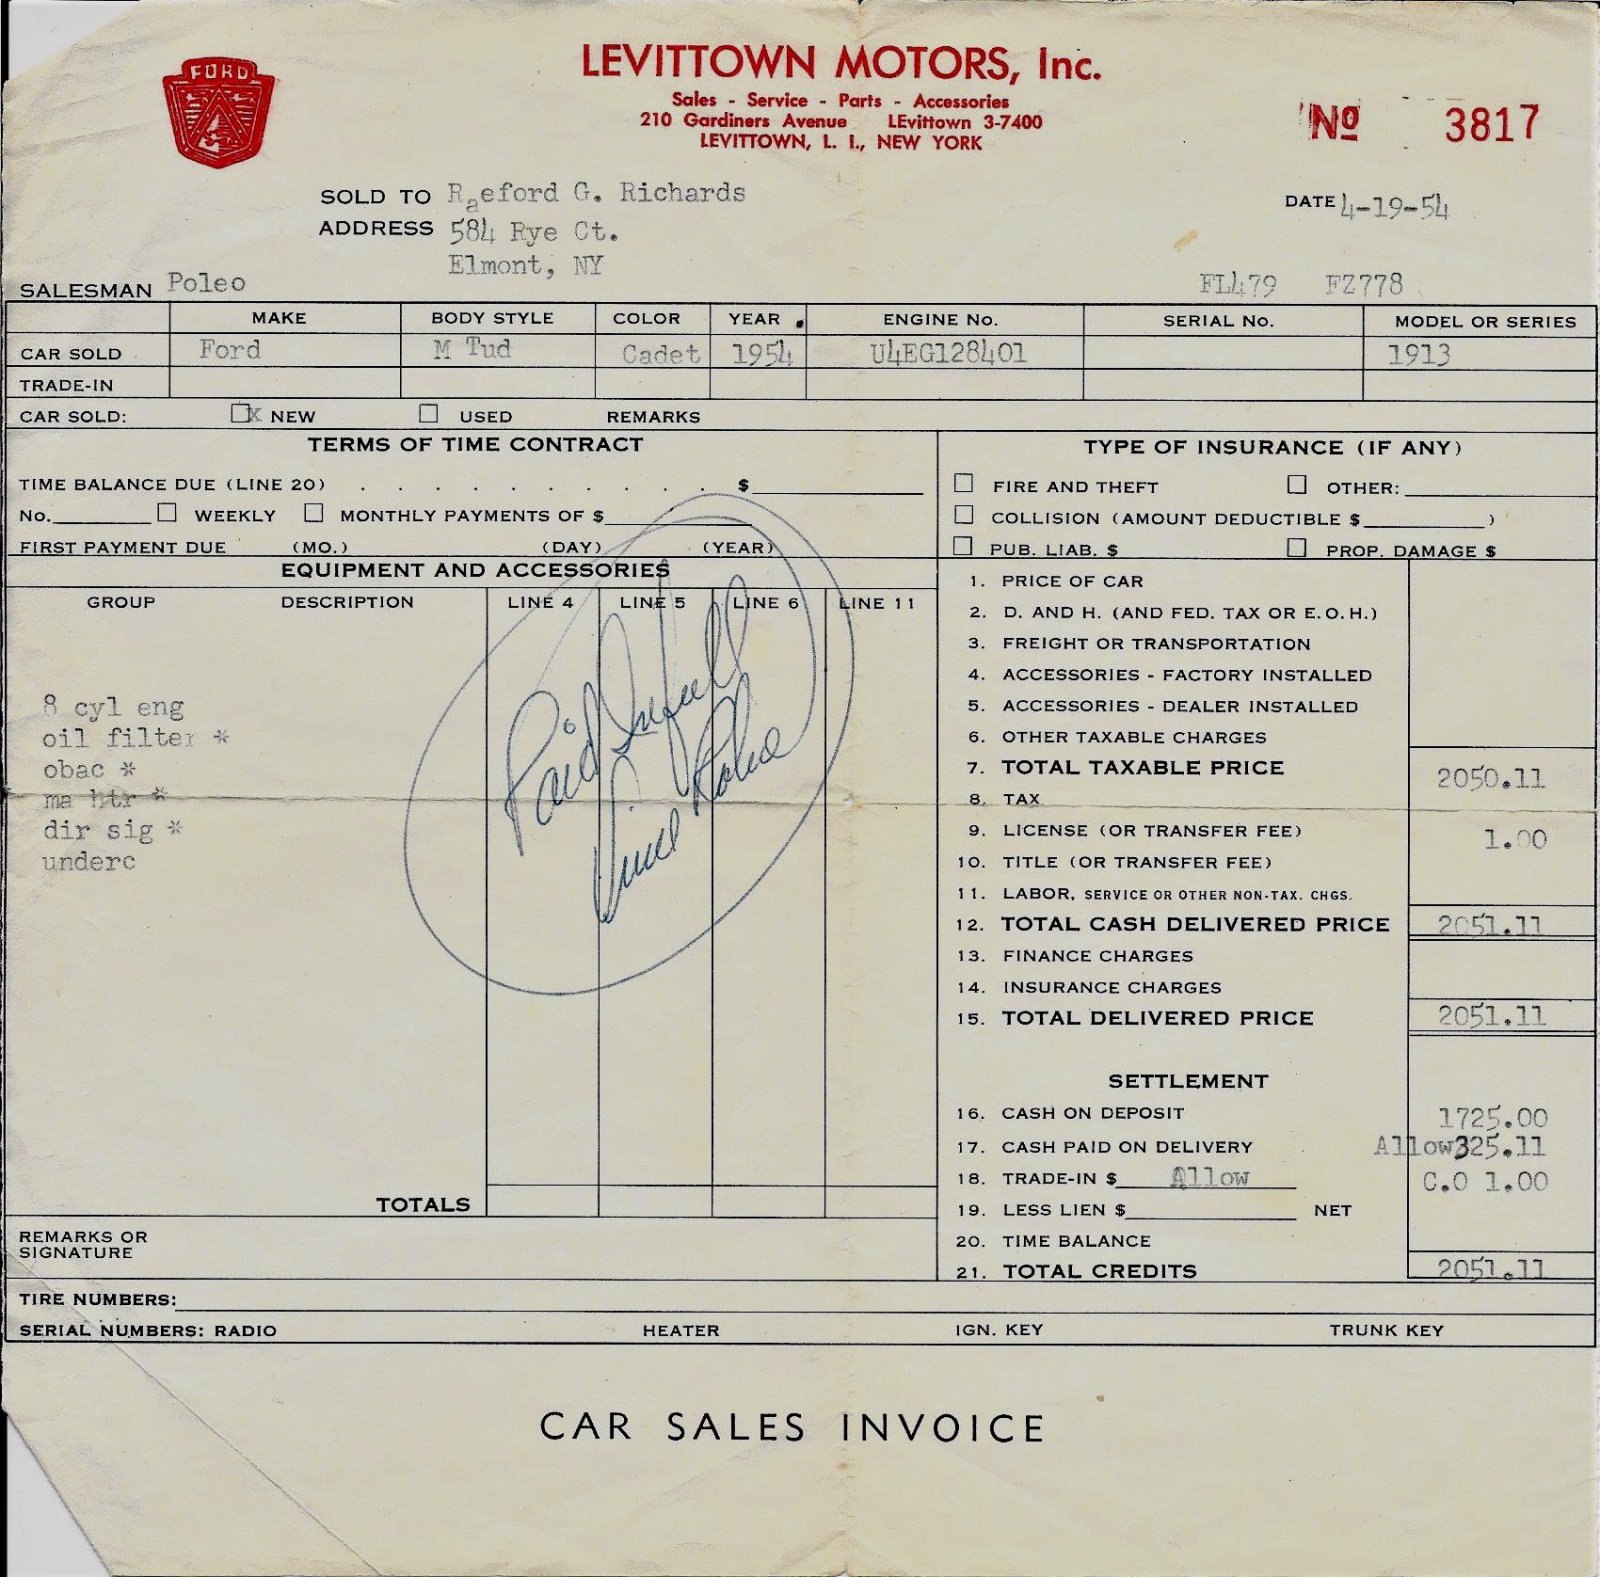 FORD
LEVITTOWN MOTORS, Inc.
Sales - Service - Parts - Accessories
210 Gardiners Avenue LEvittown 3-7400
LEVITTOWN, L. I., NEW YORK
No 3817
SOLD TO Raeford G. Richards
DATE 4-19-54
ADDRESS 584 Rye Ct.
Elmont, NY
SALESMAN Poleo FL479 FZ778
MAKE BODY STYLE COLOR YEAR ENGINE No. SERIAL No. MODEL OR SERIES
CAR SOLD Ford M Tud Cadet 1954 U4EG128401 1913
TRADE-IN
CAR SOLD: x NEW USED REMARKS
TERMS OF TIME CONTRACT
TIME BALANCE DUE (LINE 20) . . . . . . . . . . $
No. WEEKLY MONTHLY PAYMENTS OF $
FIRST PAYMENT DUE (MO.) (DAY) (YEAR)
TYPE OF INSURANCE (IF ANY)
FIRE AND THEFT OTHER:
COLLISION (AMOUNT DEDUCTIBLE $ )
PUB. LIAB. $ PROP. DAMAGE $
EQUIPMENT AND ACCESSORIES
GROUP DESCRIPTION LINE 4 LINE 5 LINE 6 LINE 11
8 cyl eng
oil filter *
obac *
ma htr *
dir sig *
underc
Paid In full
Vince Poleo
TOTALS
1. PRICE OF CAR
2. D. AND H. (AND FED. TAX OR E.O.H.)
3. FREIGHT OR TRANSPORTATION
4. ACCESSORIES - FACTORY INSTALLED
5. ACCESSORIES - DEALER INSTALLED
6. OTHER TAXABLE CHARGES
7. TOTAL TAXABLE PRICE 2050.11
8. TAX
9. LICENSE (OR TRANSFER FEE) 1.00
10. TITLE (OR TRANSFER FEE)
11. LABOR, SERVICE OR OTHER NON-TAX. CHGS.
12. TOTAL CASH DELIVERED PRICE 2051.11
13. FINANCE CHARGES
14. INSURANCE CHARGES
15. TOTAL DELIVERED PRICE 2051.11
SETTLEMENT
16. CASH ON DEPOSIT 1725.00
17. CASH PAID ON DELIVERY Allow325.11
18. TRADE-IN $ Allow C.O 1.00
19. LESS LIEN $ NET
20. TIME BALANCE
21. TOTAL CREDITS 2051.11
REMARKS OR
SIGNATURE
TIRE NUMBERS:
SERIAL NUMBERS: RADIO HEATER IGN. KEY TRUNK KEY
CAR SALES INVOICE